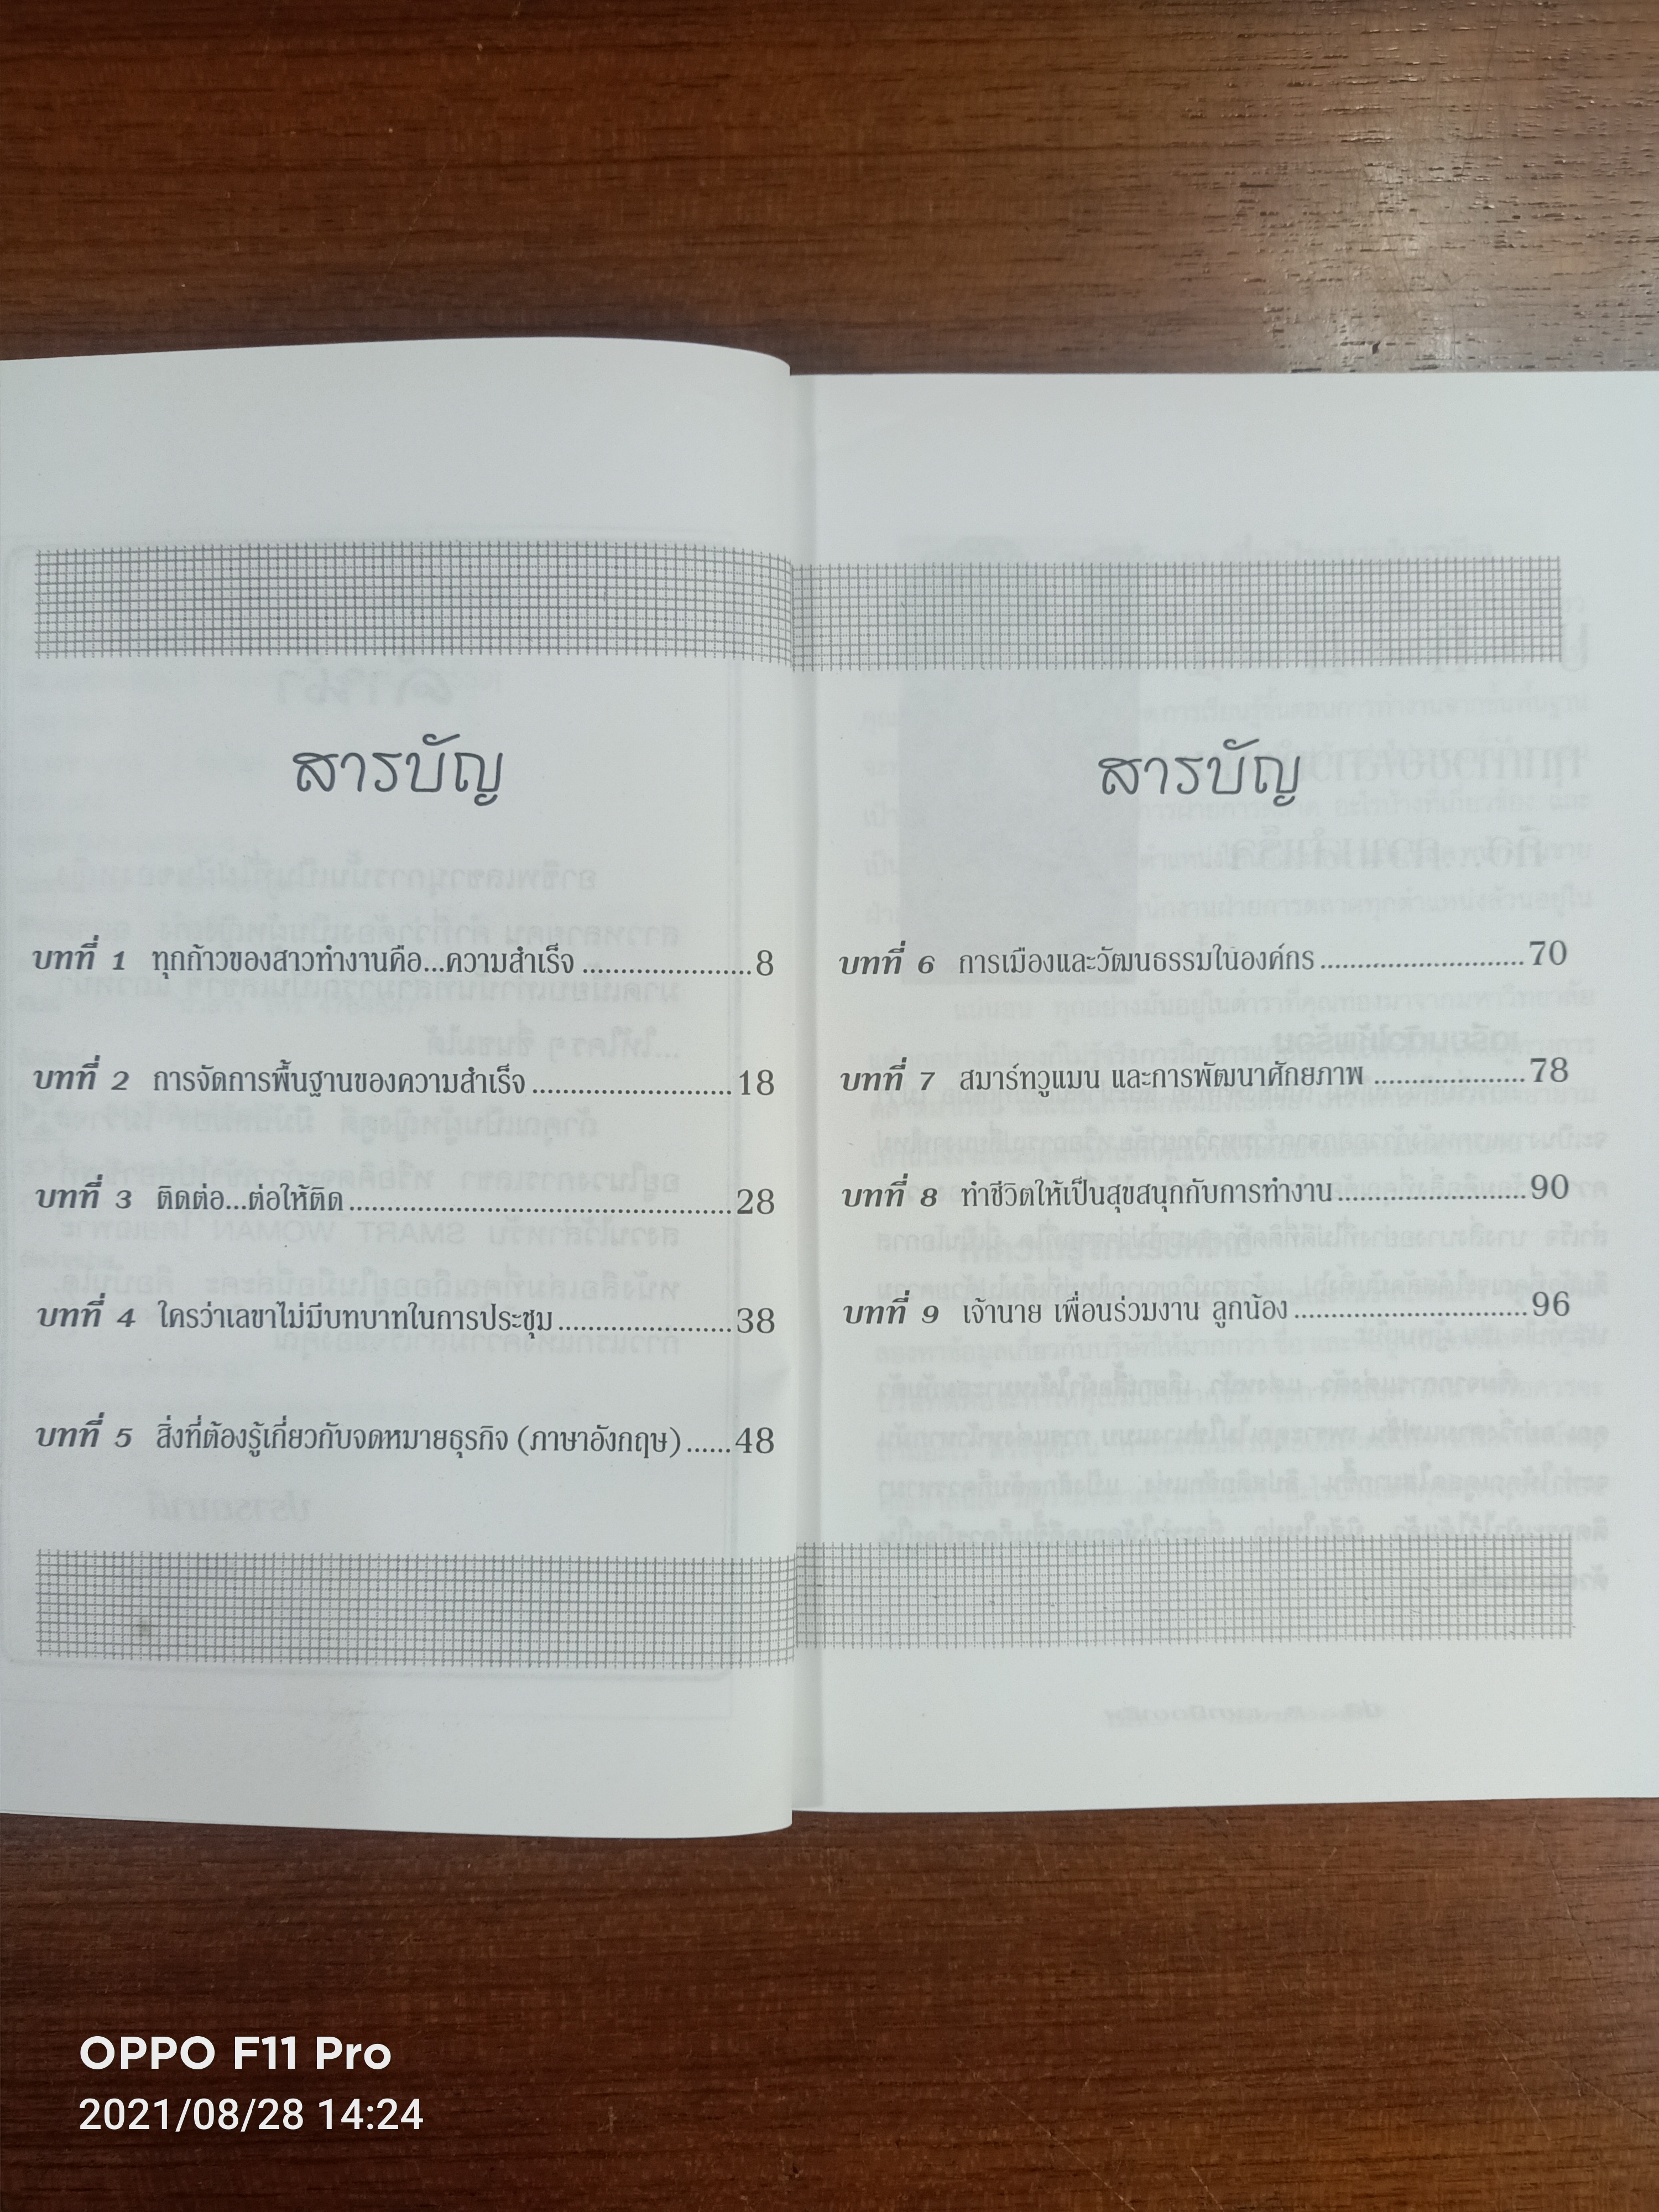 สารบัญ
บทที่ 1 ทุกก้าวของสาวทำงานคือ...ความสำเร็จ ......................8
บทที่ 2 การจัดการพื้นฐานของความสำเร็จ ..........................18
บทที่ 3 ติดต่อ...ต่อให้ติด ..................................................28
บทที่ 4 ใครว่าเลขาไม่มีบทบาทในการประชุม .......................38
บทที่ 5 สิ่งที่ต้องรู้เกี่ยวกับจดหมายธุรกิจ (ภาษาอังกฤษ) ......48
สารบัญ
บทที่ 6 การเมืองและวัฒนธรรมในองค์กร ...........................70
บทที่ 7 สมาร์ทวูแมน และการพัฒนาศักยภาพ ....................78
บทที่ 8 ทำชีวิตให้เป็นสุขสนุกกับการทำงาน .........................90
บทที่ 9 เจ้านาย เพื่อนร่วมงาน ลูกน้อง ...............................96
OPPO F11 Pro
2021/08/28 14:24